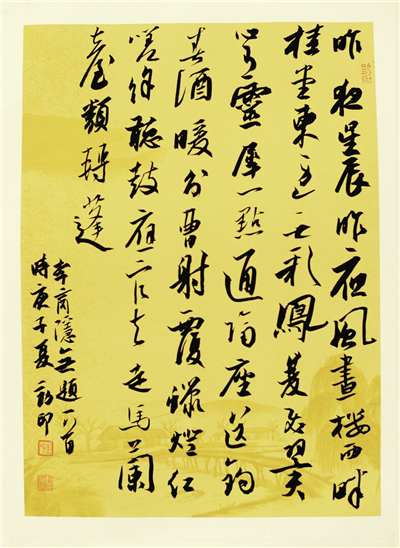 昨夜星辰昨夜風畫樓西畔
桂堂東身無彩鳳雙飛翼
心有靈犀一點通隔座送鉤
春酒暖分曹射覆蠟燈紅
嗟余聽鼓應官去走馬蘭
臺類轉蓬
李商隱無題一首
時庚子夏